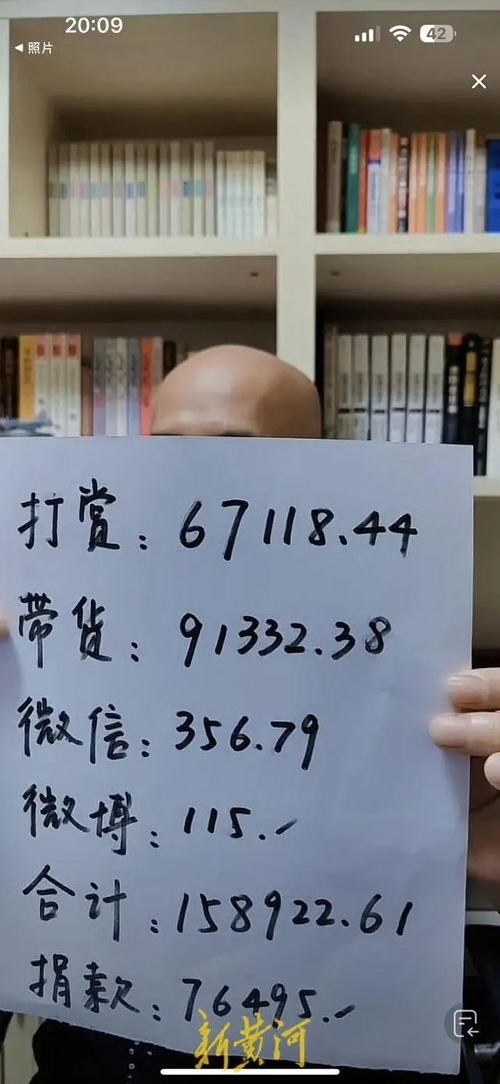 20:09
42
◀ 照片
打赏：67118.44
带货：91332.38
微信：356.79
微博：115.-
合计：158922.61
捐款：76495.-
新黄河